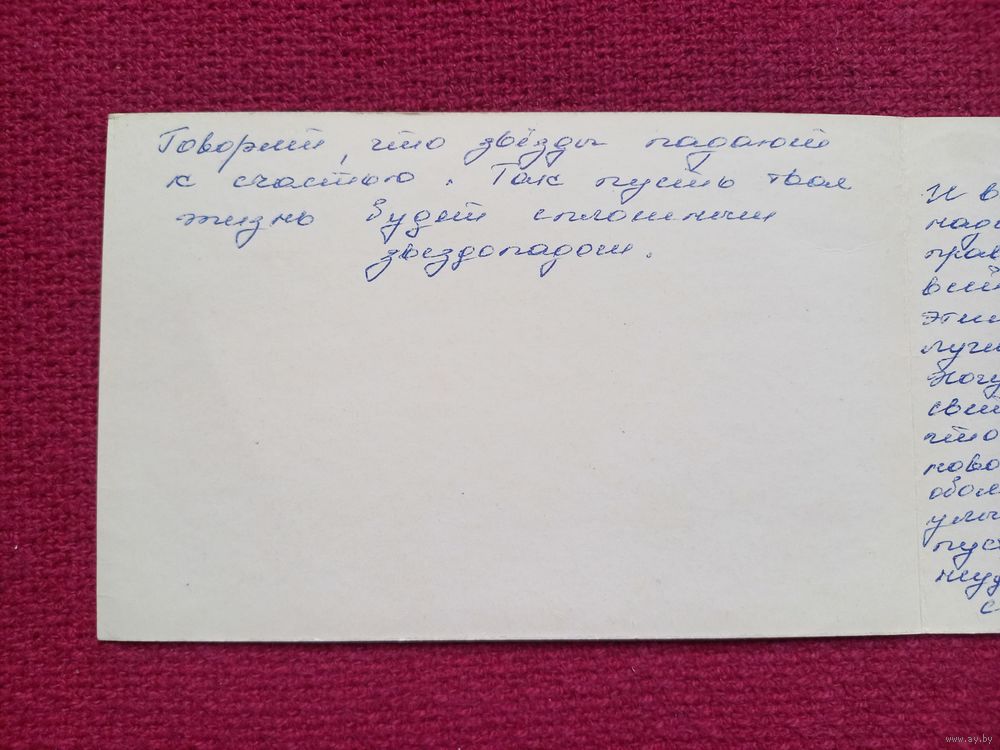 Говорят, что звёзды падают
к счастью. Так пусть твоя
жизнь будет сплошным
звездопадом.
И в
прав
этим
что
ново
пуст
неуд
с
www.ay.by